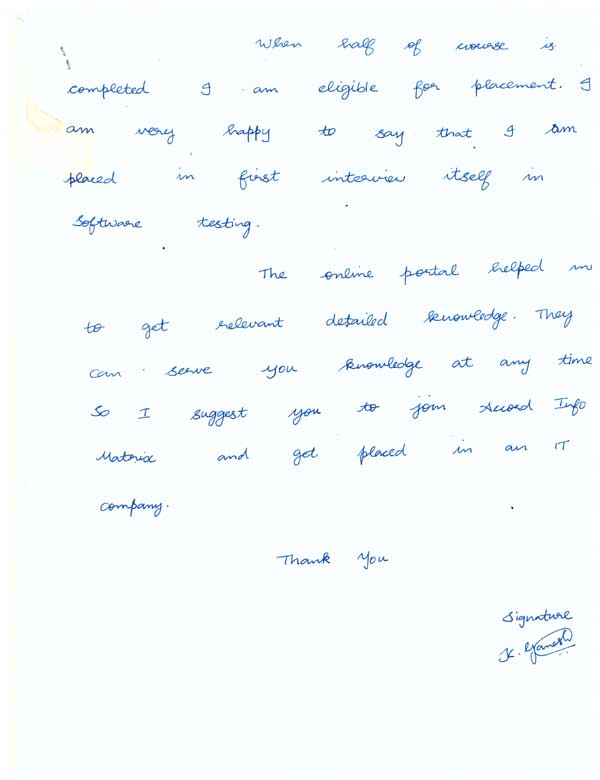 When half of course is
completed I am eligible for placement. I
am very happy to say that I am
placed in first interview itself in
Software testing.
The online portal helped m
to get relevant detailed knowledge. They
can serve you knowledge at any time
So I suggest you to join Accord Info
Matrix and get placed in an IT
company.
Thank You
Signature
K. Ganesh